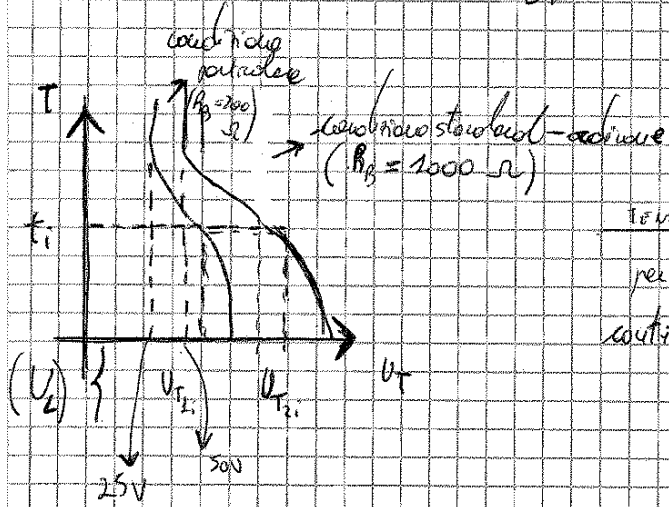 condizione
particolare
(R_B = 200
Ω)
T
condizione standard-ordinaria
(R_B = 1000 Ω)
t_i
TEN
per
conti
(U_L) {
U_T1i
U_T2i
U_T
50V
25V